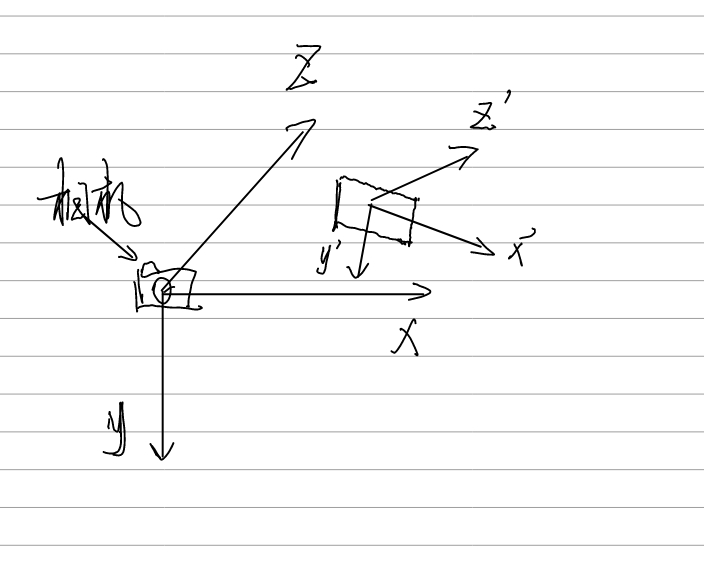 Z
Z'
相机
y'
x'
X
y